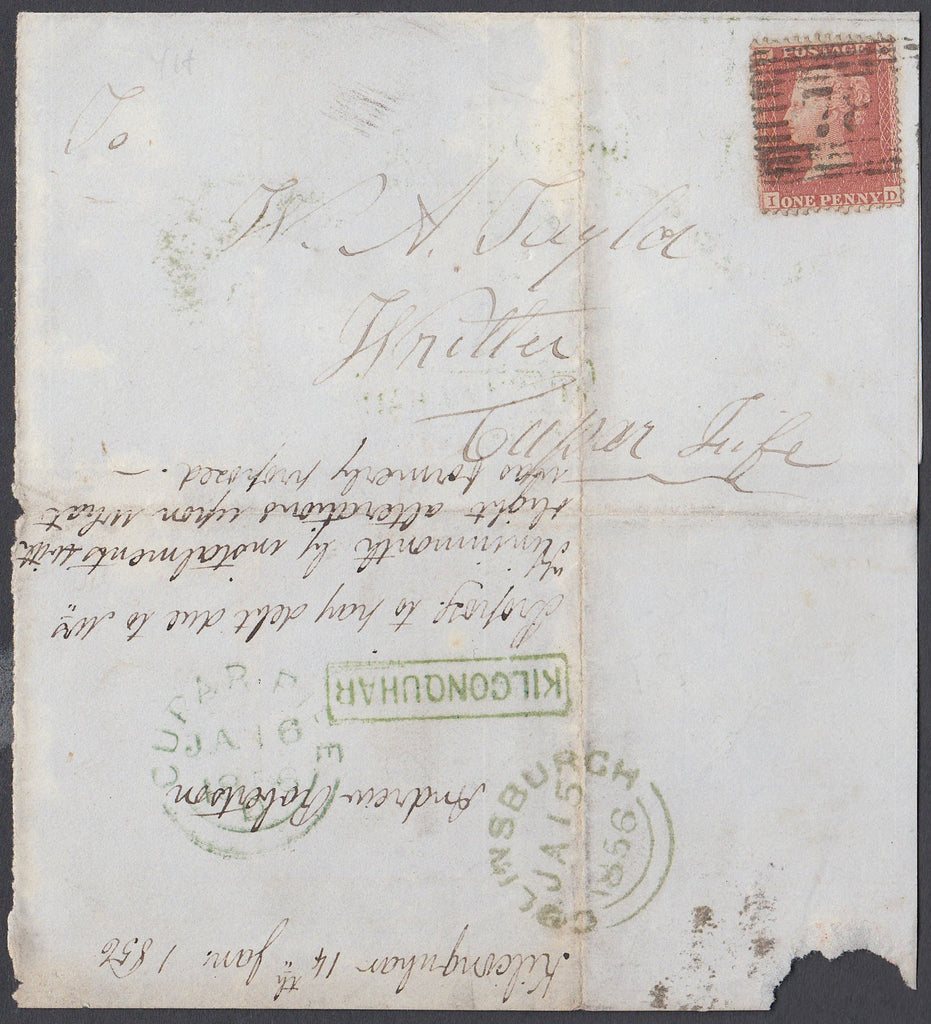 To
W. A. Taylor
Writter
Cupar Fife
POSTAGE
ONE PENNY
I D
Kilconquhar 14th Jany 1856
Andrew Robertson
to pay debt due to Mr
by instalments with
slight alterations upon what
was formerly proposed. —
KILCONQUHAR
CUPAR FIFE
JA 16
1856
COLINSBURGH
JA 15
1856